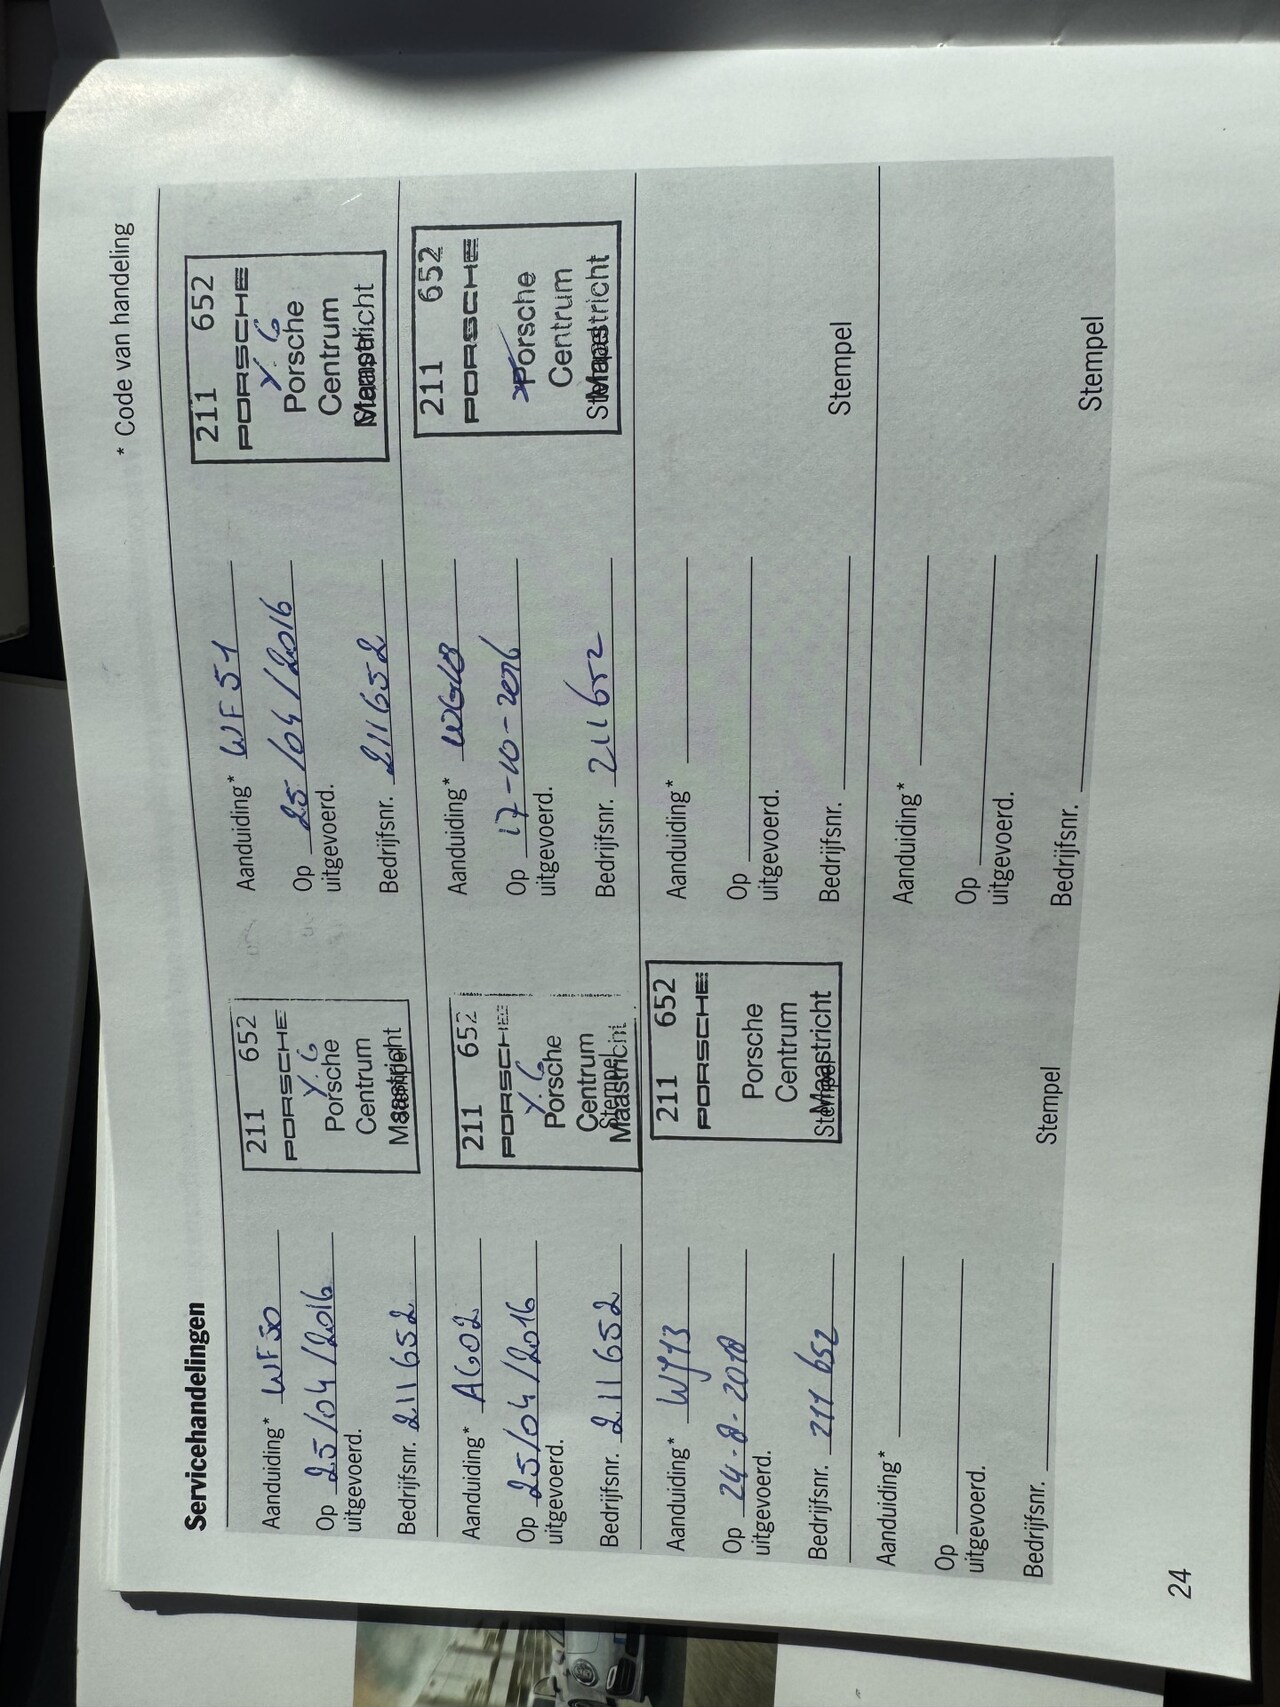 Servicehandelingen
* Code van handeling
Aanduiding* WF50
Op 25/04/2016
uitgevoerd.
Bedrijfsnr. 211652
211 652
PORSCHE
Y.G
Porsche
Centrum
Maastricht
Stempel
Aanduiding* WF51
Op 25/04/2016
uitgevoerd.
Bedrijfsnr. 211652
211 652
PORSCHE
Y.G
Porsche
Centrum
Maastricht
Stempel
Aanduiding* AG02
Op 25/04/2016
uitgevoerd.
Bedrijfsnr. 211652
211 652
PORSCHE
Y.G
Porsche
Centrum
Stempel
Maastricht
Aanduiding*
Op 17-10-2016
uitgevoerd.
Bedrijfsnr. 211652
211 652
PORSCHE
Porsche
Centrum
Maastricht
Stempel
Aanduiding* WY13
Op 24-8-2018
uitgevoerd.
Bedrijfsnr. 211652
211 652
PORSCHE
Porsche
Centrum
Maastricht
Stempel
Aanduiding*
Op
uitgevoerd.
Bedrijfsnr.
Stempel
Aanduiding*
Op
uitgevoerd.
Bedrijfsnr.
Stempel
Aanduiding*
Op
uitgevoerd.
Bedrijfsnr.
Stempel
24